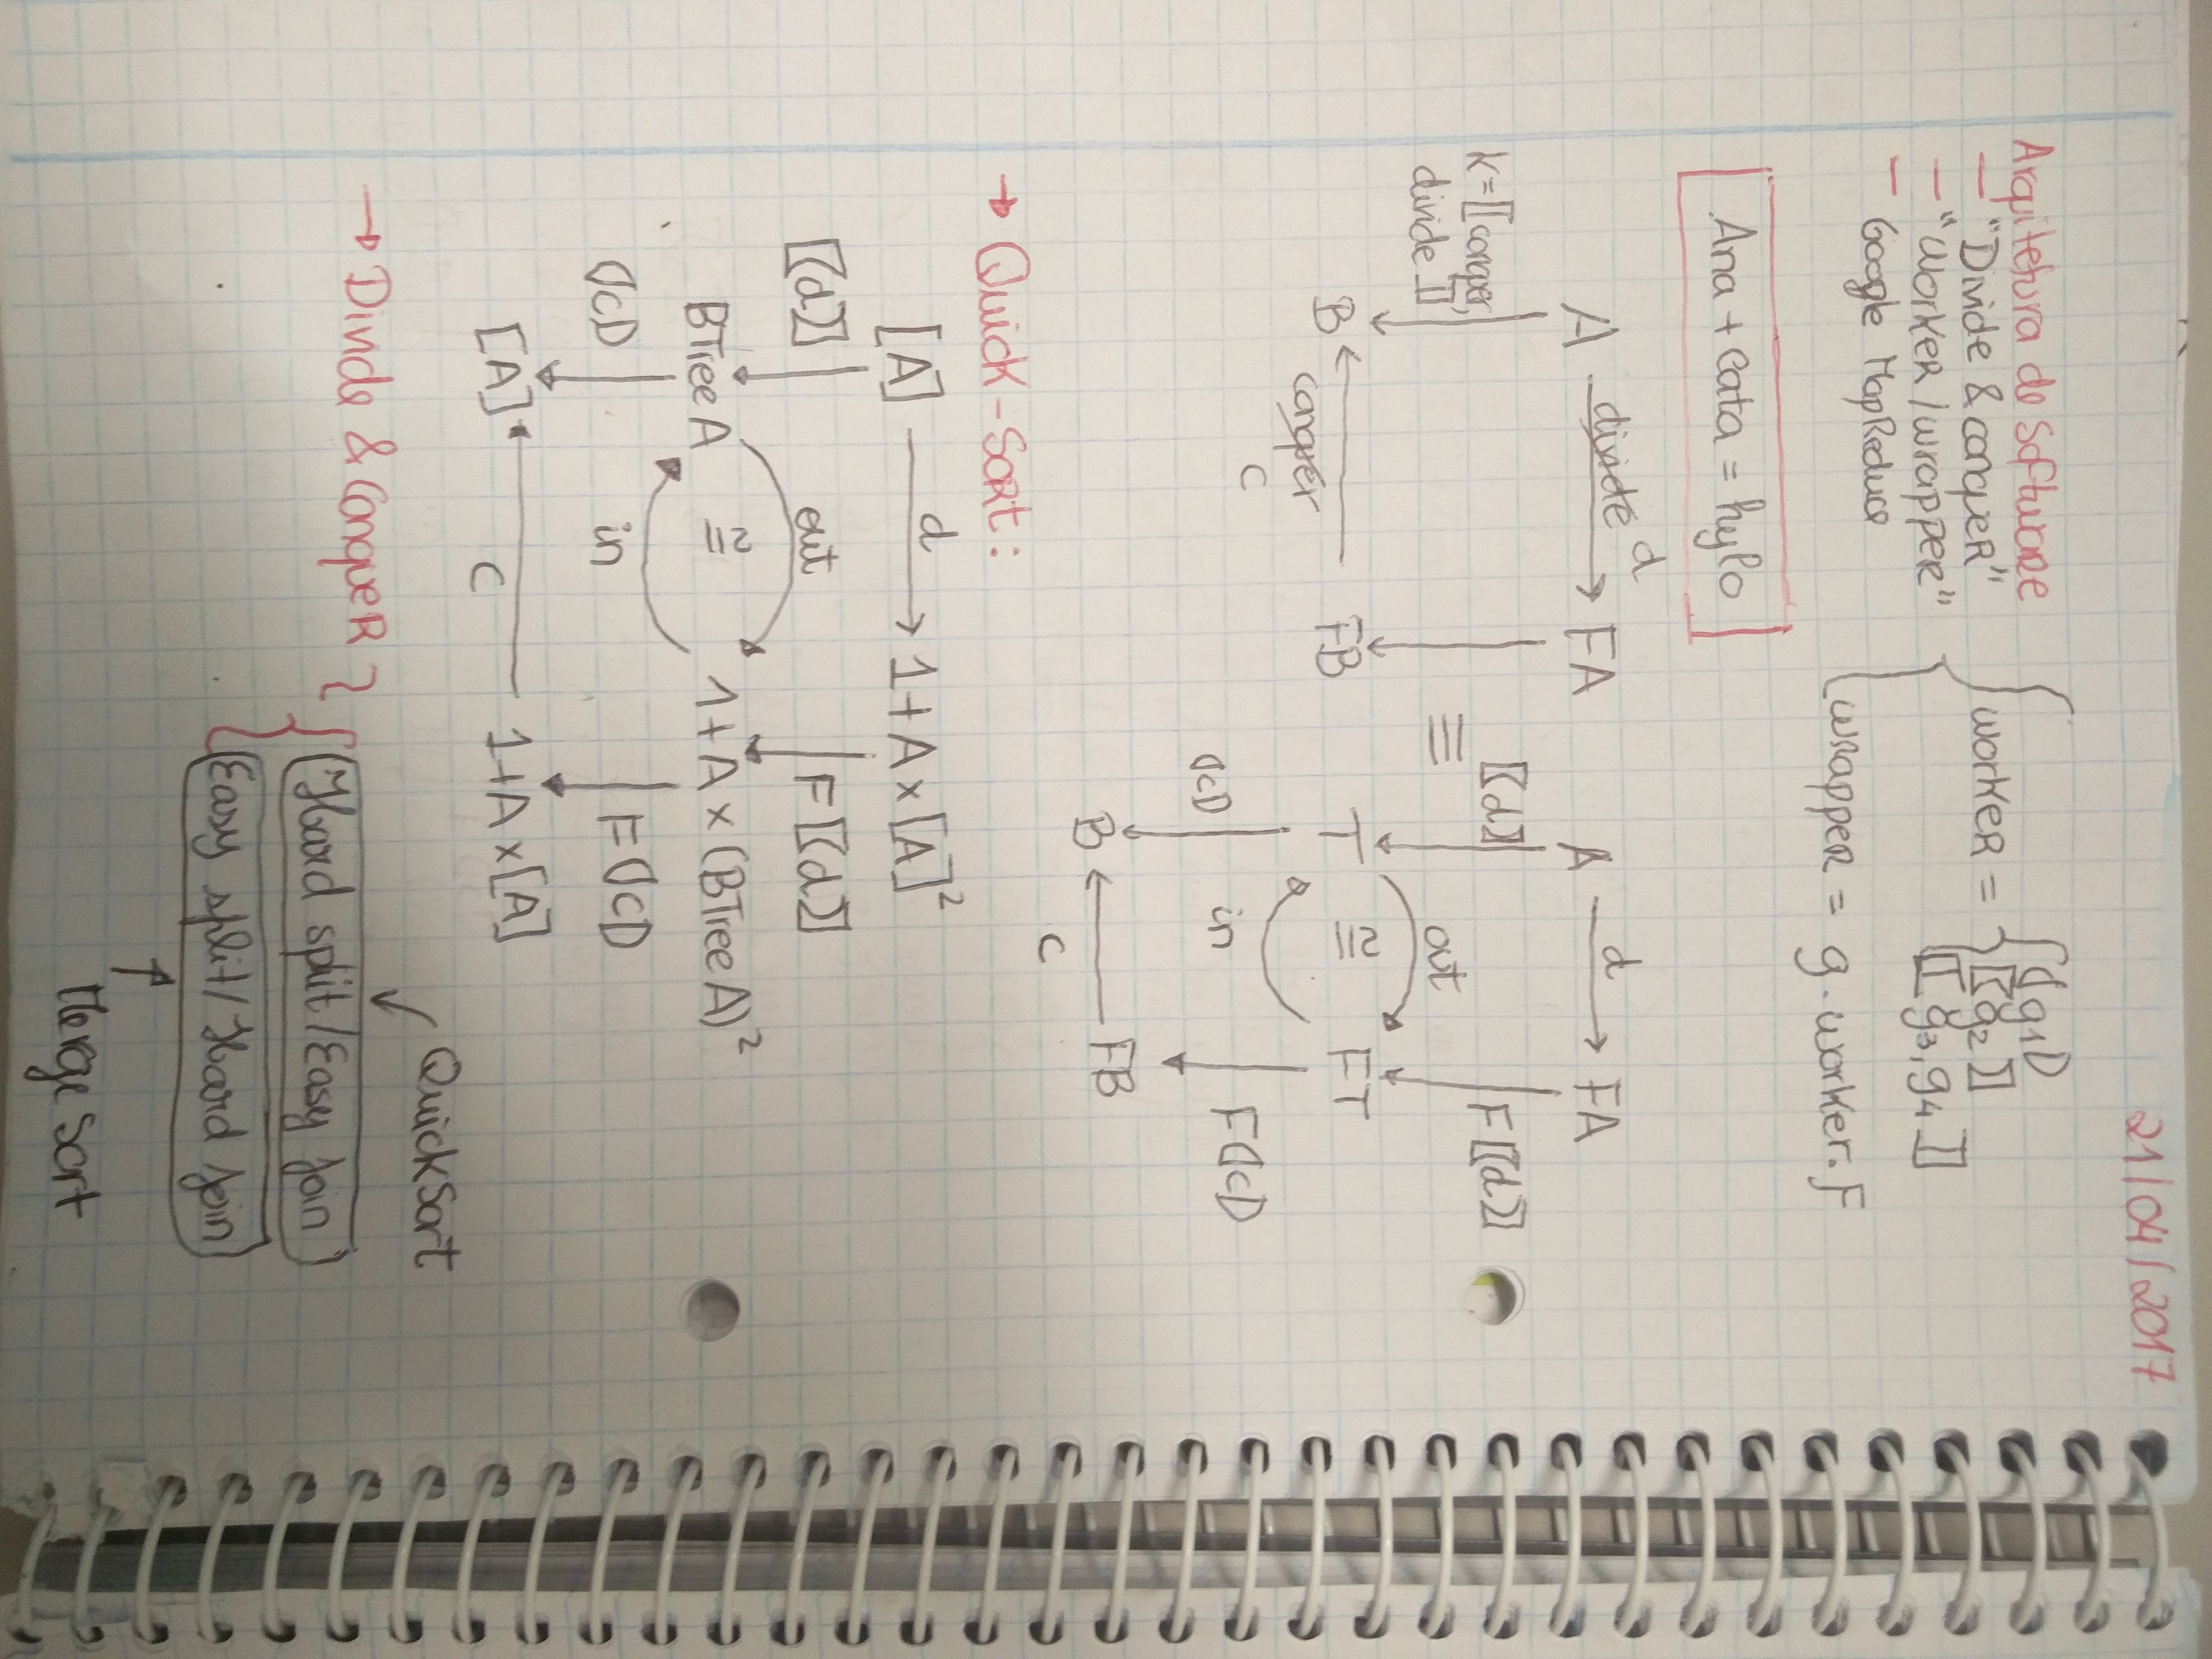 21/04/2017
Arquitetura de Software
— "Divide & conquer"
— "Worker/wrapper"
— Google MapReduce
worker = { ⦇g1⦈
〖g2〗
⟦g3, g4⟧
wrapper = g . worker . F
Ana + Cata = hylo
A divide d FA
K = ⟦conquer,
divide⟧
B conquer FB
c
≡
A d FA
〖d〗 F〖d〗
out
T ≅ FT
in
⦇c⦈ F⦇c⦈
B c FB
→ Quick-Sort:
[A] d 1+A×[A]²
〖d〗 F〖d〗
out
BTree A ≅ 1+A×(BTree A)²
in
⦇c⦈ F⦇c⦈
[A] c 1+A×[A]
QuickSort
→ Divide & Conquer
Hard split/Easy join
Easy split/Hard join
Merge Sort